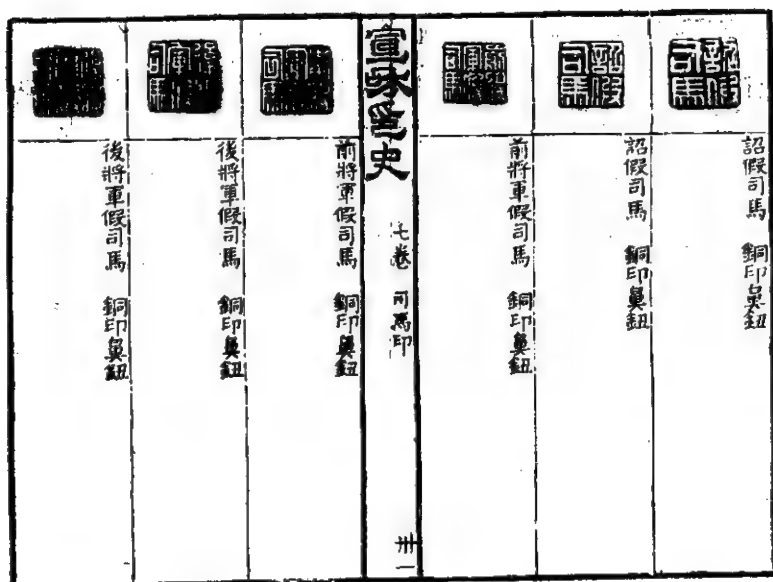 詔假
司馬
詔假司馬 銅印鼻鈕
詔假
司馬
詔假司馬 銅印鼻鈕
前將軍假司馬 銅印鼻鈕
宣和印史 七卷 司馬印 卅一
前將軍假司馬 銅印鼻鈕
後將軍假司馬 銅印鼻鈕
後將軍假司馬 銅印鼻鈕